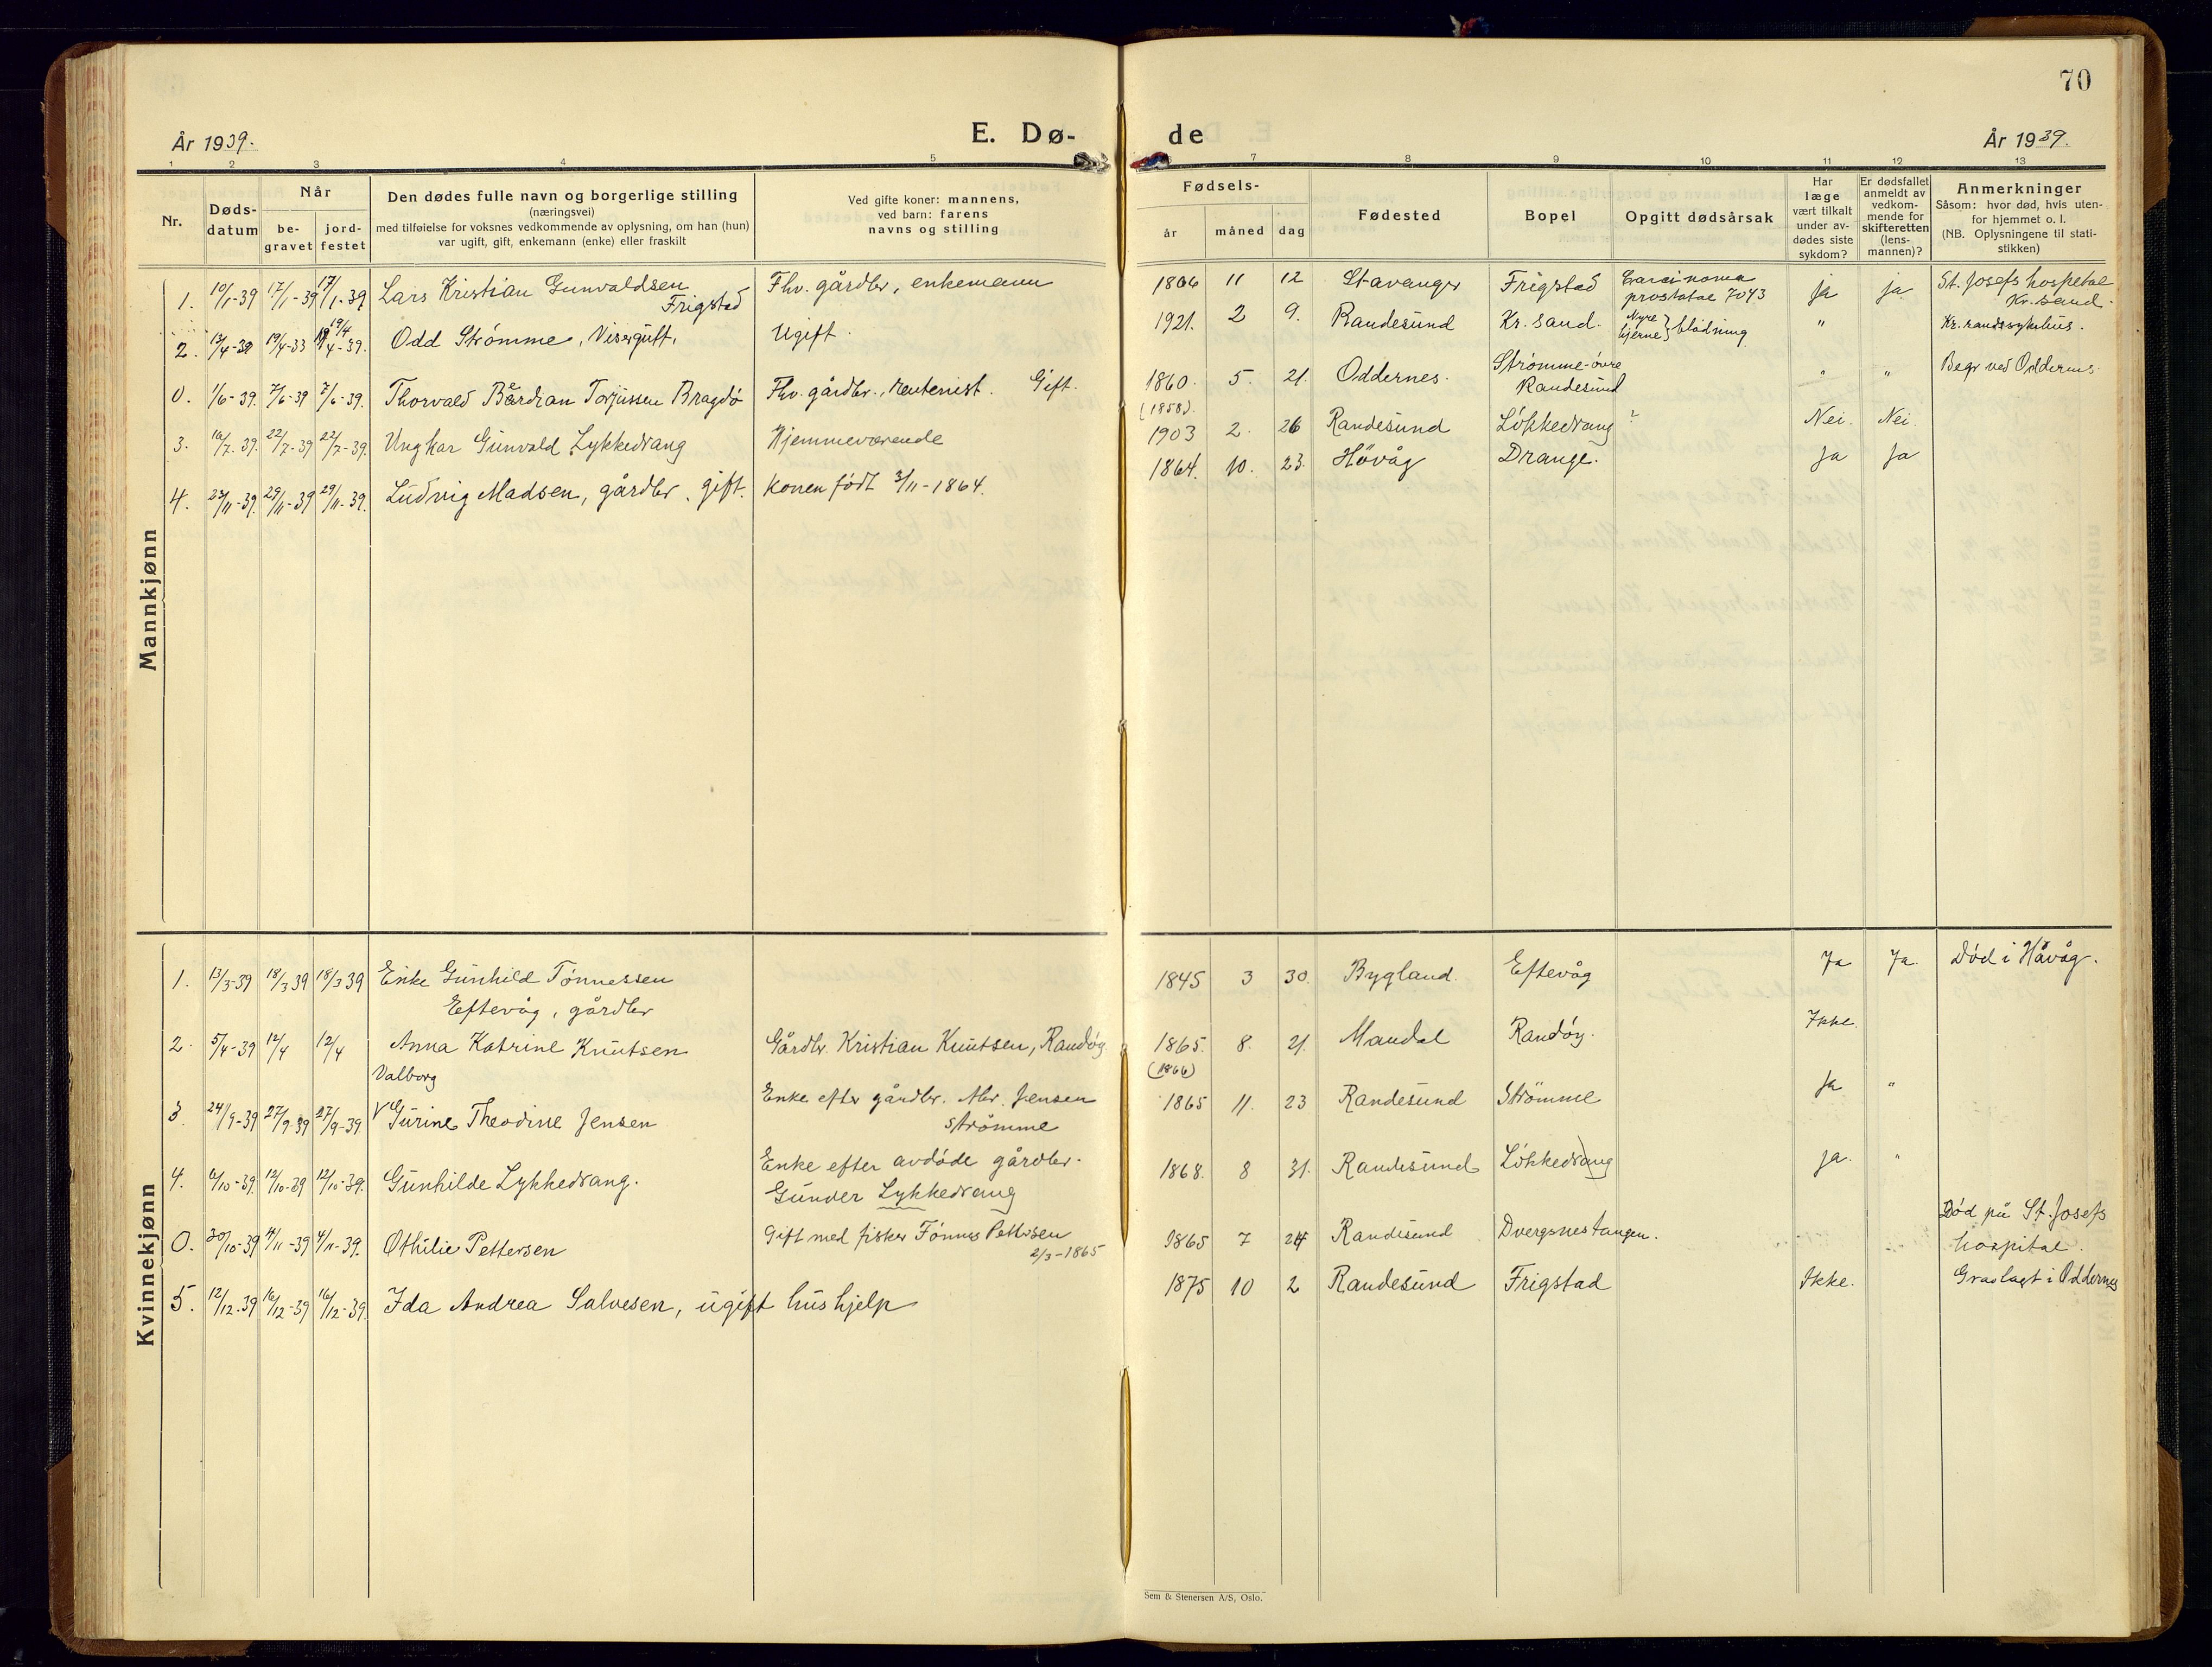 70
År 1939.
E. Dø-
de
År 1939.
1 2 3 4 5 7 8 9 10 11 12 13
Nr.
Døds-
datum
Når
be-
gravet
jord-
festet
Den dødes fulle navn og borgerlige stilling
(næringsvei)
med tilføielse for voksnes vedkommende av oplysning, om han (hun)
var ugift, gift, enkemann (enke) eller fraskilt
Ved gifte koner: mannens,
ved barn: farens
navns og stilling
Fødsels-
år måned dag
Fødested
Bopel
Opgitt dødsårsak
Har
læge
vært tilkalt
under av-
dødes siste
sykdom?
Er dødsfallet
anmeldt av
vedkom-
mende for
skifteretten
(lens-
mannen)?
Anmerkninger
Såsom: hvor død, hvis uten-
for hjemmet o. l.
(NB. Oplysningene til stati-
stikken)
Mannkjønn
1. 10/1-39 17/1-39 17/1-39 Lars Kristian Gunvaldsen Fhv. gårdbr, enkemann 11 12 Stavanger Frigstad Carcinoma ja ja St. Josefs hospital
Frigstad prostatae 7043 Kr.sand.
2. 19/4-33 19/4-39. Odd Strømme, Visergutt, Ugift. 1921. 2 9. Randesund Kr. sand. Nyre } blødning " Kr.sandssykehus.
hjerne
0. 1/6-39. 7/6-39 7/6-39. Thorvald Torjussen Bragdø Fhv. gårdbr., rentenist. Gift. 1860. 5. 21. Oddernes. Strømme-övre " " Begr ved Oddernes.
(1858). Randesund
3. 16/7-39. 22/7-39 22/7-39. Unghar Gunvald Lykkedrang Hjemmeværende 1903 2. 26 Randesund Lökkedrang ? Nei. Nei.
4. 23/11-39. 29/11-39 29/11-39. Ludvig Madsen, gårdbr, gift. Konen født 3/11-1864. 1864. 10. 23. Hövåg Drange. Ja Ja
Kvinnekjønn
1. 13/3-39 18/3 39 18/3 39 Enke Gunhild Tønnessen 1845 3 30. Bygland. Eftevåg Ja Ja Død i Håvåg.
Eftevåg, gårdbr
2. 5/4-39 12/4 12/4 Anna Katrine Knutsen Gårdbr. Kristian Knutsen, Randøy 1865. 8. 21. Mandal Randöy. Ikke.
(1866)
Valborg
3. 24/9-39 27/9-39 27/9-39 Gurine Theodine Jensen Enke efter gårdbr. Abr. Jensen 1865 11. 23 Randesund Strömme Ja "
Strømme
4. 6/10-39. 12/10-39 12/10-39. Gunhilde Lykkedrang. Enke efter avdøde gårdbr. 1868. 8 31. Randesund Lökkedrang ja. "
Gunder Lykkedrang
0. 30/10-39 4/11-39 4/11-39. Othilie Pettersen Gift med fisker Tønnes Pettersen 1865 7 24 Randesund Dvergsnestangen. Død på St. Josefs
2/3-1865 hospital.
5. 12/12-39 16/12-39 16/12-39. Ida Andrea Salvesen, ugift hushjelp 1875 10 2 Randesund Frigstad Ikke. Gravlagt i Oddernes
Sem & Stenersen A/S, Oslo.